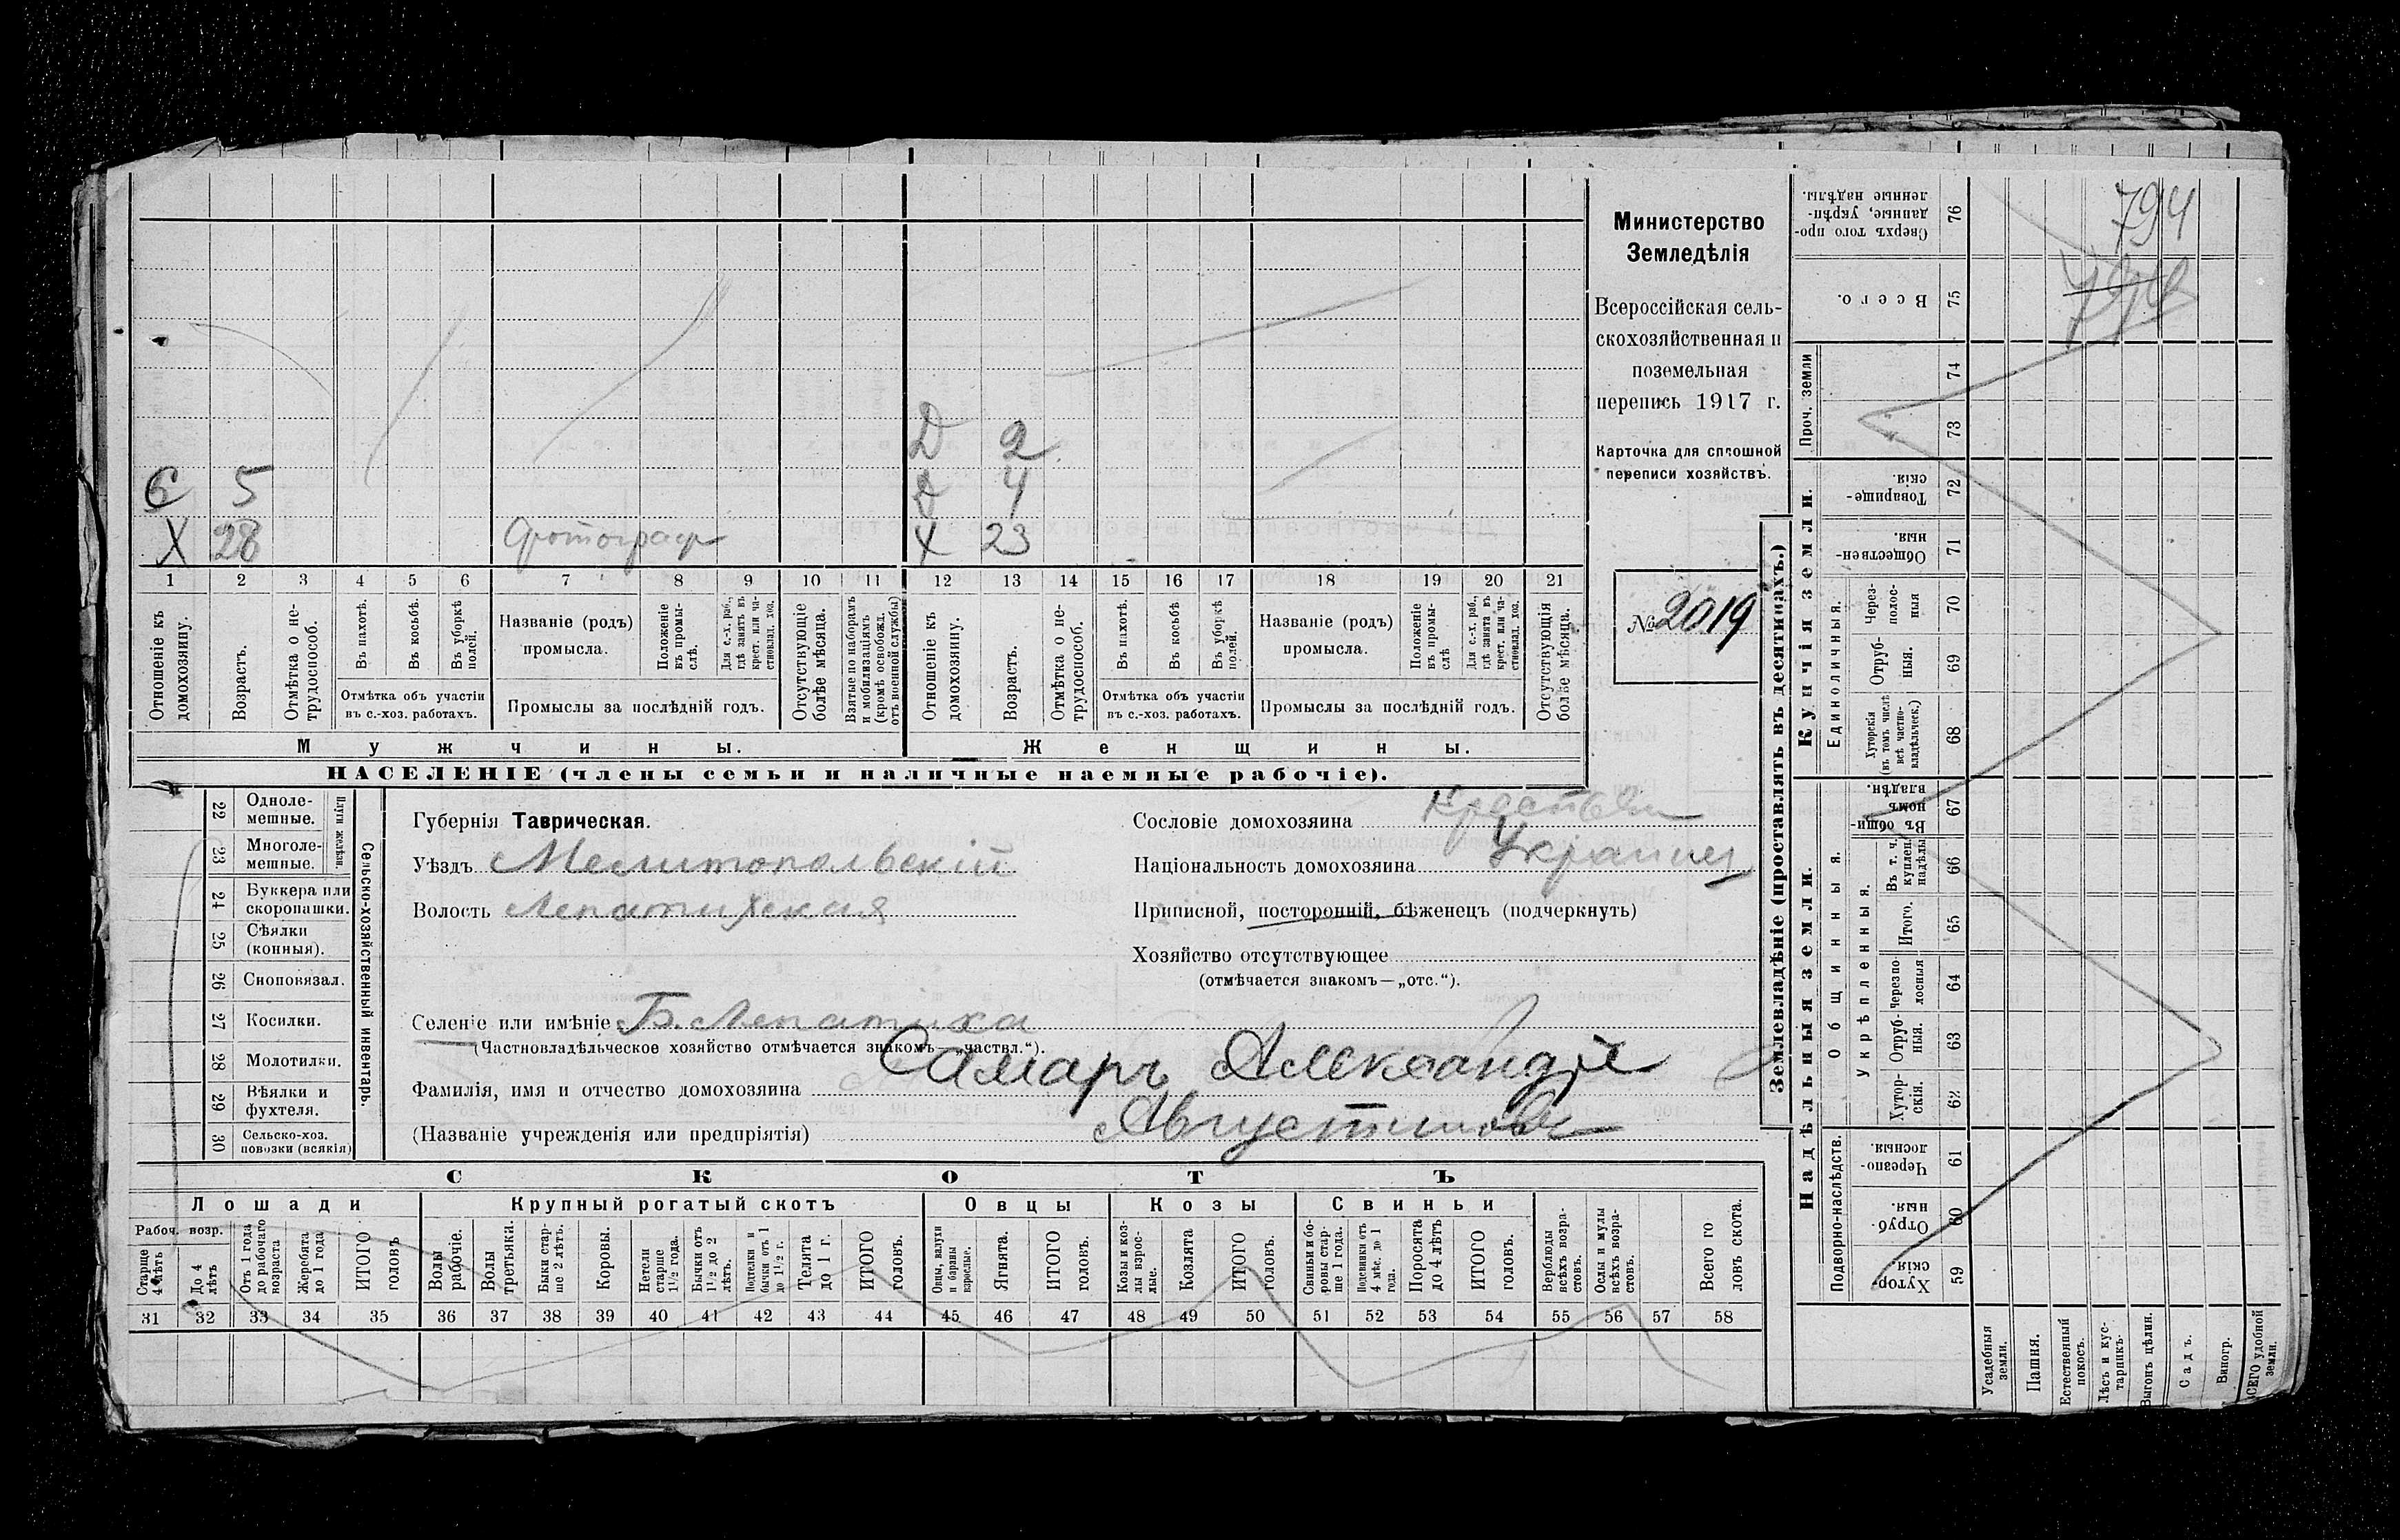 Министерство
Земледѣлія
Всероссійская сель-
скохозяйственная и
поземельная
перепись 1917 г.
Карточка для сплошной
переписи хозяйствъ.
№ 2019
Д 2
С 5 Д 4
Х 28 Фотограф Х 23
1 2 3 4 5 6 7 8 9 10 11 12 13 14 15 16 17 18 19 20 21
Отношеніе къ домохозяину.
Возрастъ.
Отмѣтка о не-трудоспособ.
Въ пахотѣ.
Въ косьбѣ.
Въ уборкѣ полей.
Отмѣтка объ участіи
въ с.-хоз. работахъ.
Названіе (родъ)
промысла.
Положеніе въ промы-слѣ.
Для с.-х. раб., гдѣ занятъ въ крест. или ча-стновлад. хоз.
Промыслы за послѣдній годъ.
Отсутствующіе болѣе мѣсяца.
Взятые по наборамъ и мобилизаціямъ (кромѣ освобожд. отъ военной службы)
Отношеніе къ домохозяину.
Возрастъ.
Отмѣтка о не-трудоспособ.
Въ пахотѣ.
Въ косьбѣ
Въ уборкѣ полей.
Отмѣтка объ участіи
въ с.-хоз. работахъ.
Названіе (родъ)
промысла.
Положеніе въ промы-слѣ
Для с.-х. раб., гдѣ занята въ крест. или ча-стновлад. хоз.
Промыслы за послѣдній годъ.
Отсутствующія болѣе мѣсяца.
Мужчины. Женщины.
НАСЕЛЕНІЕ (члены семьи и наличные наемные рабочіе).
Сельско-хозяйственный инвентарь.
Плуги желѣзн.
22 Одноле-мешные.
23 Многоле-мешные.
24 Буккера или скоропашки.
25 Сѣялки (конныя).
26 Сноповязал.
27 Косилки.
28 Молотилки.
29 Вѣялки и фухтеля.
30 Сельско-хоз. повозки (всякія)
Губернія Таврическая.
Уѣздъ Мелитопольскій
Волость Лепатихская
Сословіе домохозяина Крестьян
Національность домохозяина Украинец
Приписной, посторонній, бѣженецъ (подчеркнуть)
Хозяйство отсутствующее
(отмѣчается знакомъ—„отс.“).
Селеніе или имѣніе Б. Лепатиха
(Частновладѣльческое хозяйство отмѣчается знакомъ—„частвл.“).
Фамилія, имя и отчество домохозяина Самаръ Александръ
(Названіе учрежденія или предпріятія) Августинов
СКОТЪ
Лошади
Крупный рогатый скотъ
Овцы
Козы
Свиньи
Рабоч. возр.
Старше 4 лѣтъ
До 4 лѣтъ
Отъ 1 года до рабочаго возраста
Жеребята до 1 года
ИТОГО головъ
Волы рабочіе.
Волы третьяки.
Быки стар-ше 2 лѣтъ.
Коровы.
Нетели старше 1½ года.
Бычки отъ 1½ до 2 лѣтъ.
Подтелки и бычки отъ 1 до 1½ г.
Телята до 1 г.
ИТОГО головъ.
Овцы, валухи и бараны взрослые.
Ягнята.
ИТОГО головъ.
Козы и коз-лы взрос-лые.
Козлята
ИТОГО головъ.
Свиньи и бо-ровы стар-ше 1 года.
Подсвинки отъ 4 мѣс. до 1 года.
Поросята до 4 лѣтъ
ИТОГО головъ.
Верблюды всѣхъ возра-стовъ.
Ослы и мулы всѣхъ возра-стовъ.
Всего го ловъ скота.
31 32 33 34 35 36 37 38 39 40 41 42 43 44 45 46 47 48 49 50 51 52 53 54 55 56 57 58
Землевладѣніе (проставлять въ десятинахъ.)
Купчія земли.
Надѣльныя земли.
76 Сверхъ того про-данные, укрѣп-ленные надѣлы.
794
75 Всего.
Проч. земли
74
73
72 Товарище-скія.
71 Обществен-ныя.
Единоличныя.
70 Через-полос-ныя
69 Отруб-ныя.
68 Хуторскія (въ томъ числѣ всѣ частно-владѣльческ.)
Общинныя.
67 Въ общин-номъ владѣн.
Укрѣпленныя.
66 Въ т. ч. куплен. надѣлы
65 Итого.
64 Черезпо-лосныя
63 Отруб-ныя.
62 Хутор-скія.
Подворно-наслѣдств.
61 Черезпо-лосныя.
60 Отруб-ныя.
59 Хутор-скія.
Усадебныя земли.
Пашня.
Естественный покосъ.
Лѣсъ и кус-тарникъ.
Выгонъ цѣлин.
Садъ.
Виногр.
ВСЕГО удобной земли.